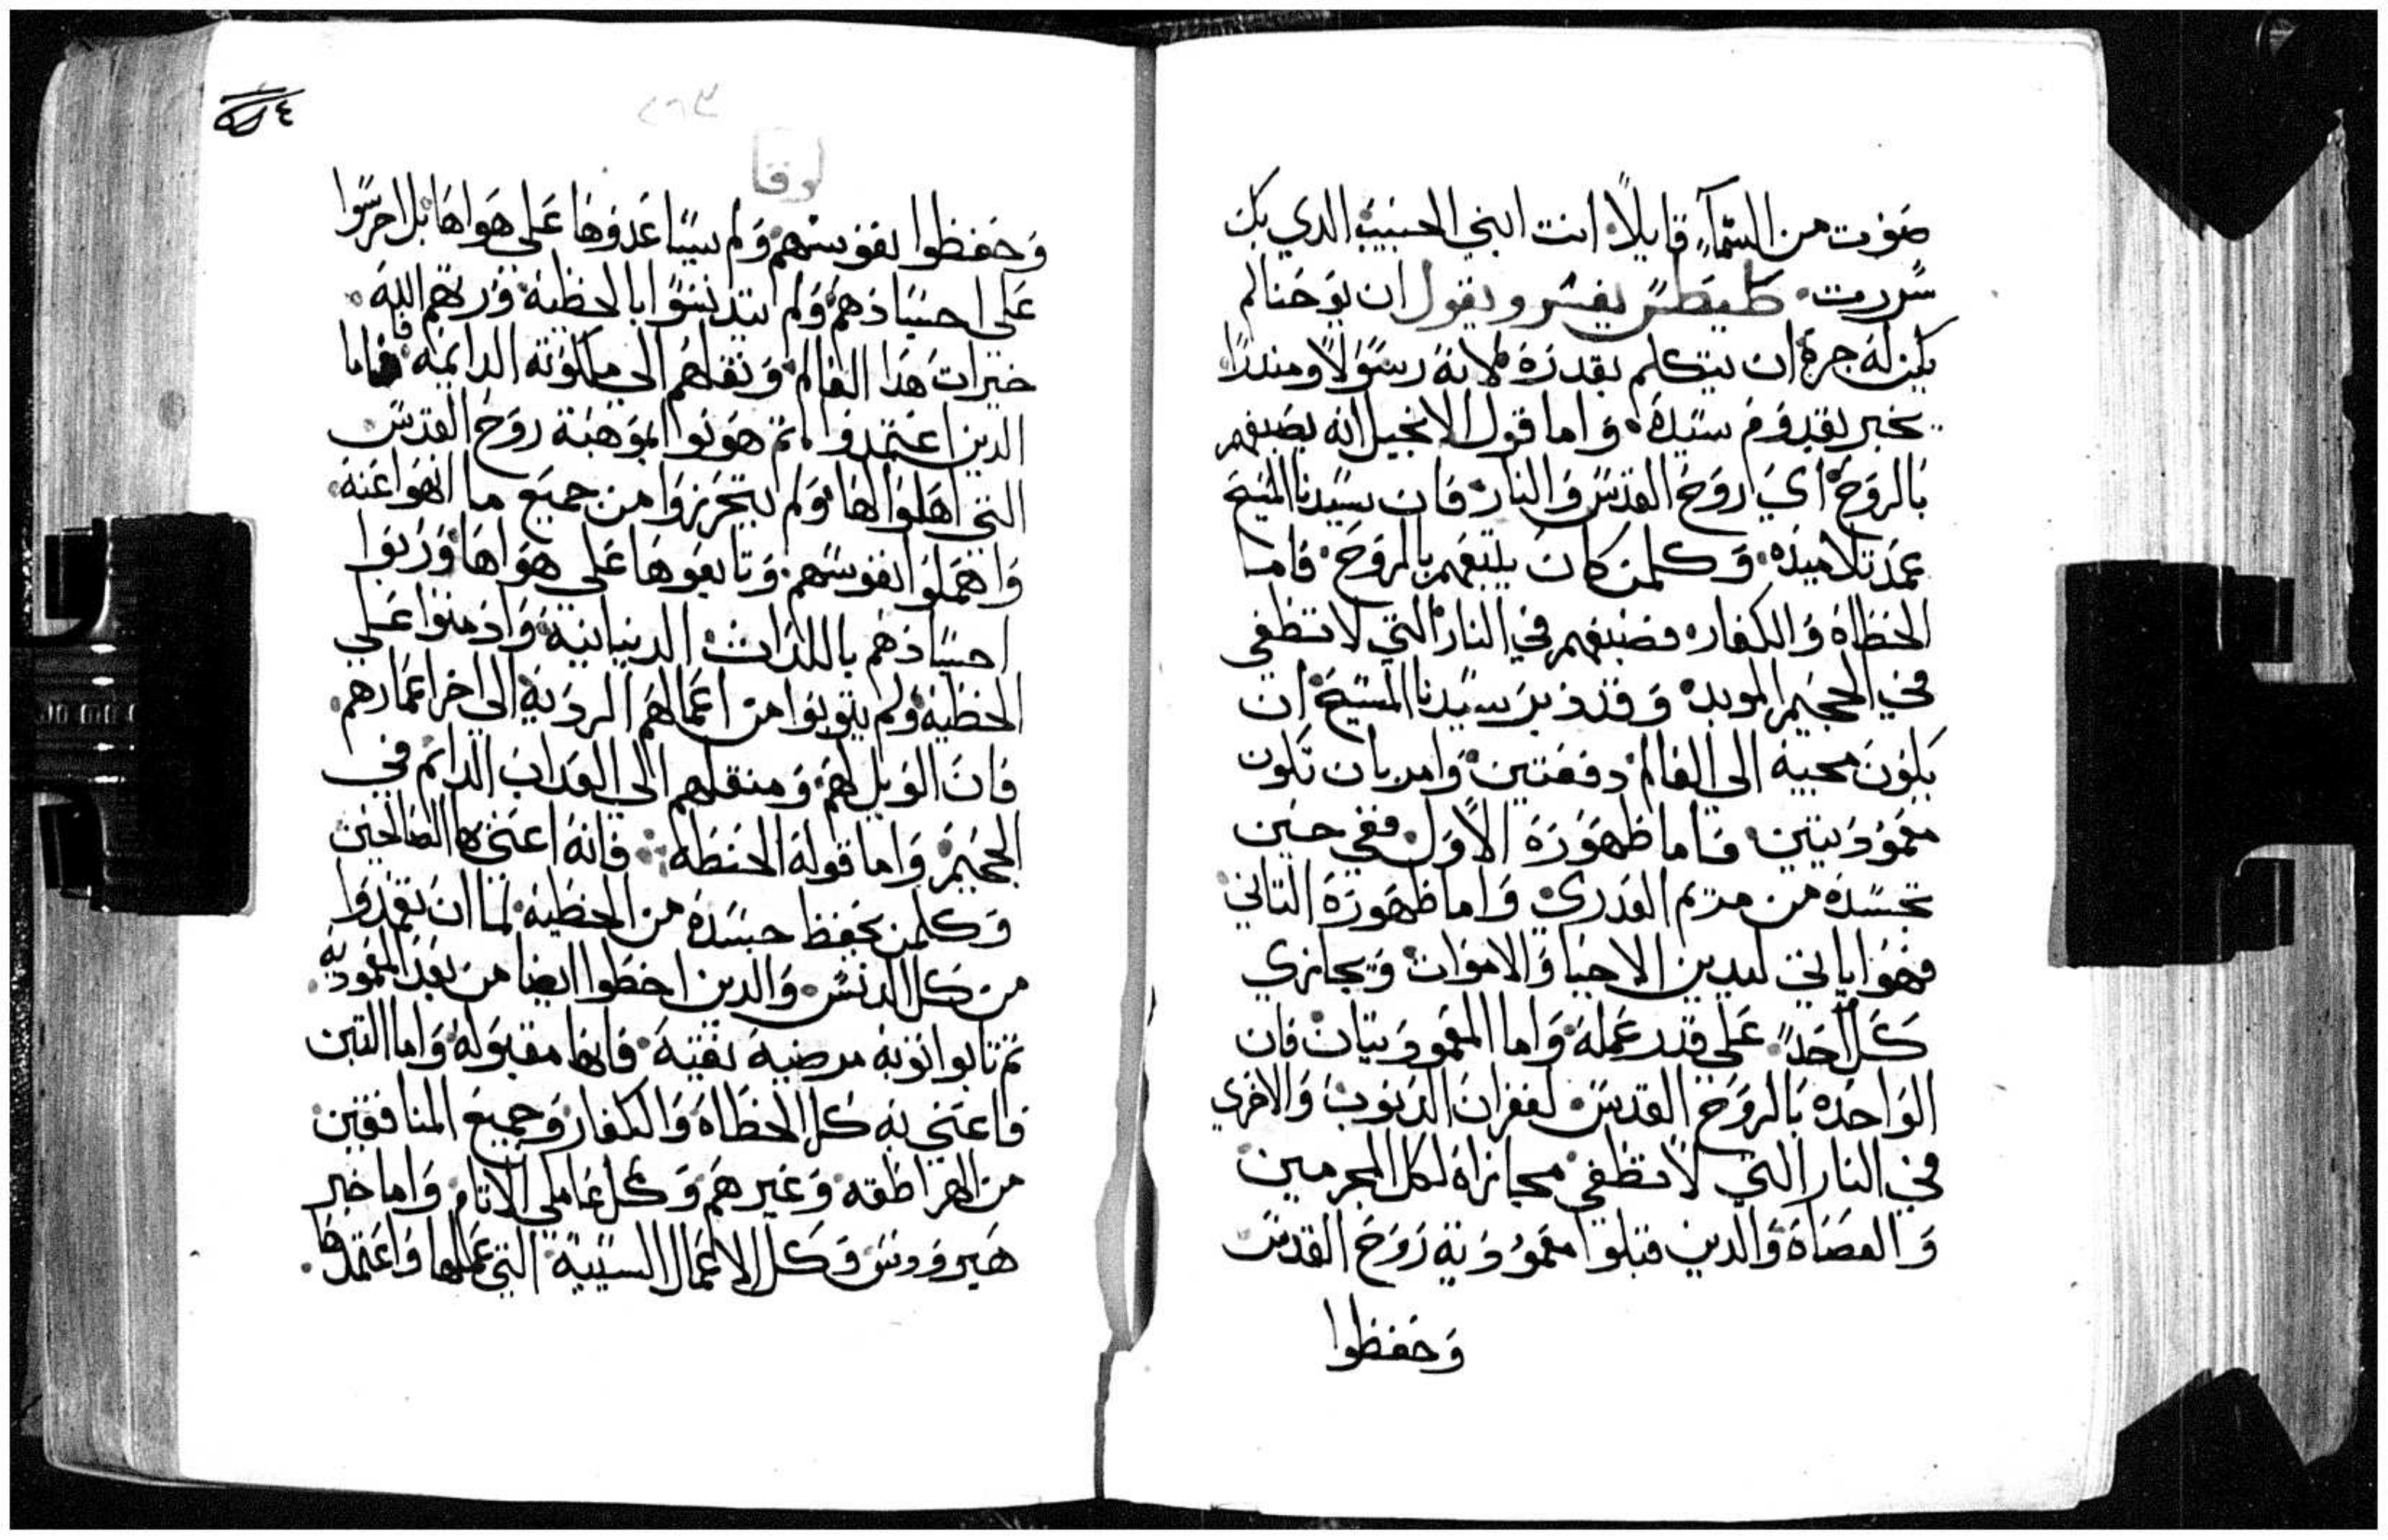 صَوْت من السَّمآءِ قايلاً انت ابني الحبيب الدي بك
سُررت كليطس يفسر ويقول ان يوَحَنا لم
يكن له جرة ان يتكلم بقدرَة لانهَ رسَوَلاً ومندرًا
يخبر بقدوَم سيَدهَ وَاما قول الانجيل انه يصَبغهم
بالروَحَ ايَ روَحَ القدسَ وَالنار فان سيَدنا المسيَحَ
عمَد تلاميدهَ وَكلمن كان يتبعَهم بالروَحَ فاما
الخطاة وَالكفار فصَبغهم في النار التي لا تطفي
في الجحيم الموبد وَقد دبر سيَدنا المسَيَحَ ان
يكوَن مجيَهَ الي العَالم دفعَتين وَامر بان تكون
معَموَديتين فاما ظهَوَرَهَ الاوَل ففي حَين
تجسَدهَ من مريم العَدري وَاما ظهَوَرَهَ التاني
فهوَ اياتي ليدين الاحيَا وَالاموَات وَيجازي
كل احَداً علي قدر عَملهَ وَاما المعَموَديتان فان
الوَاحَده بالروَحَ القدسَ لغفران الدنوَب وَالاخَري
في النار التي لا تطفي مجازاة لكل المجرمين
وَالعصَاة وَالدين قبلوا معَموَديةَ رَوَحَ القدسَ
وَحفظوا
٢٦٣
لوقا
وَحَفظوا نفوسَهم وَلم يسَيَبا عَدوَها عَلي هوَاها بل احرسَوا
عَلي اجسَادهمَ وَلم يتدنسَوَا بالخطيَة وَرَبَهم اللهَ
خيرات هَدا العَالم وَنقلهَم الي ملكوَته الدايمة فاما
الدين اعَتمدوَا تم هوَنوا بموَهبَة روَحَ القدسَ
التي اهَلوَا لهَا وَلم يتحَرزوَا من جميَع ما انهوَا عَنهَ
وَاهمَلوَا نفوسَهم وَتابعَوَها عَلي هوَاهَا وَرَبوَا
اجسَادهم باللدات الدنيانيَة وَادمنوَا عَلي
الخطيَة وَلم يتوَبوَا من اعَمالهَم الرديَة الي اخر اعَمارهم
فان الوَيل لهَم وَمنقلهم الي العَداب الدايم في
الجحَيم وَاما قولهَ الحَنطة فانهَ اعَني بها الصَالحين
وَكلمن يحَفظ جسَدهَ من الخطيَة لما ان تعَمدوَا
من كل الدنسَ وَالدين اخطوا ايضا من بعَد المعَموديه
تم تابوا توَبة مرضيةَ نقيَةَ فانها مقبوَله وَاما التبن
فاعَني به كل الخطاةَ وَالكفار وَجميَع المنافقين
من الهراطقه وَغيرهمَ وَكل عَاملي الاتام وَاما خبر
هَيروَدسَ وَكل الاعَمال السيَيةَ التي عَملها وَاعَتمدها